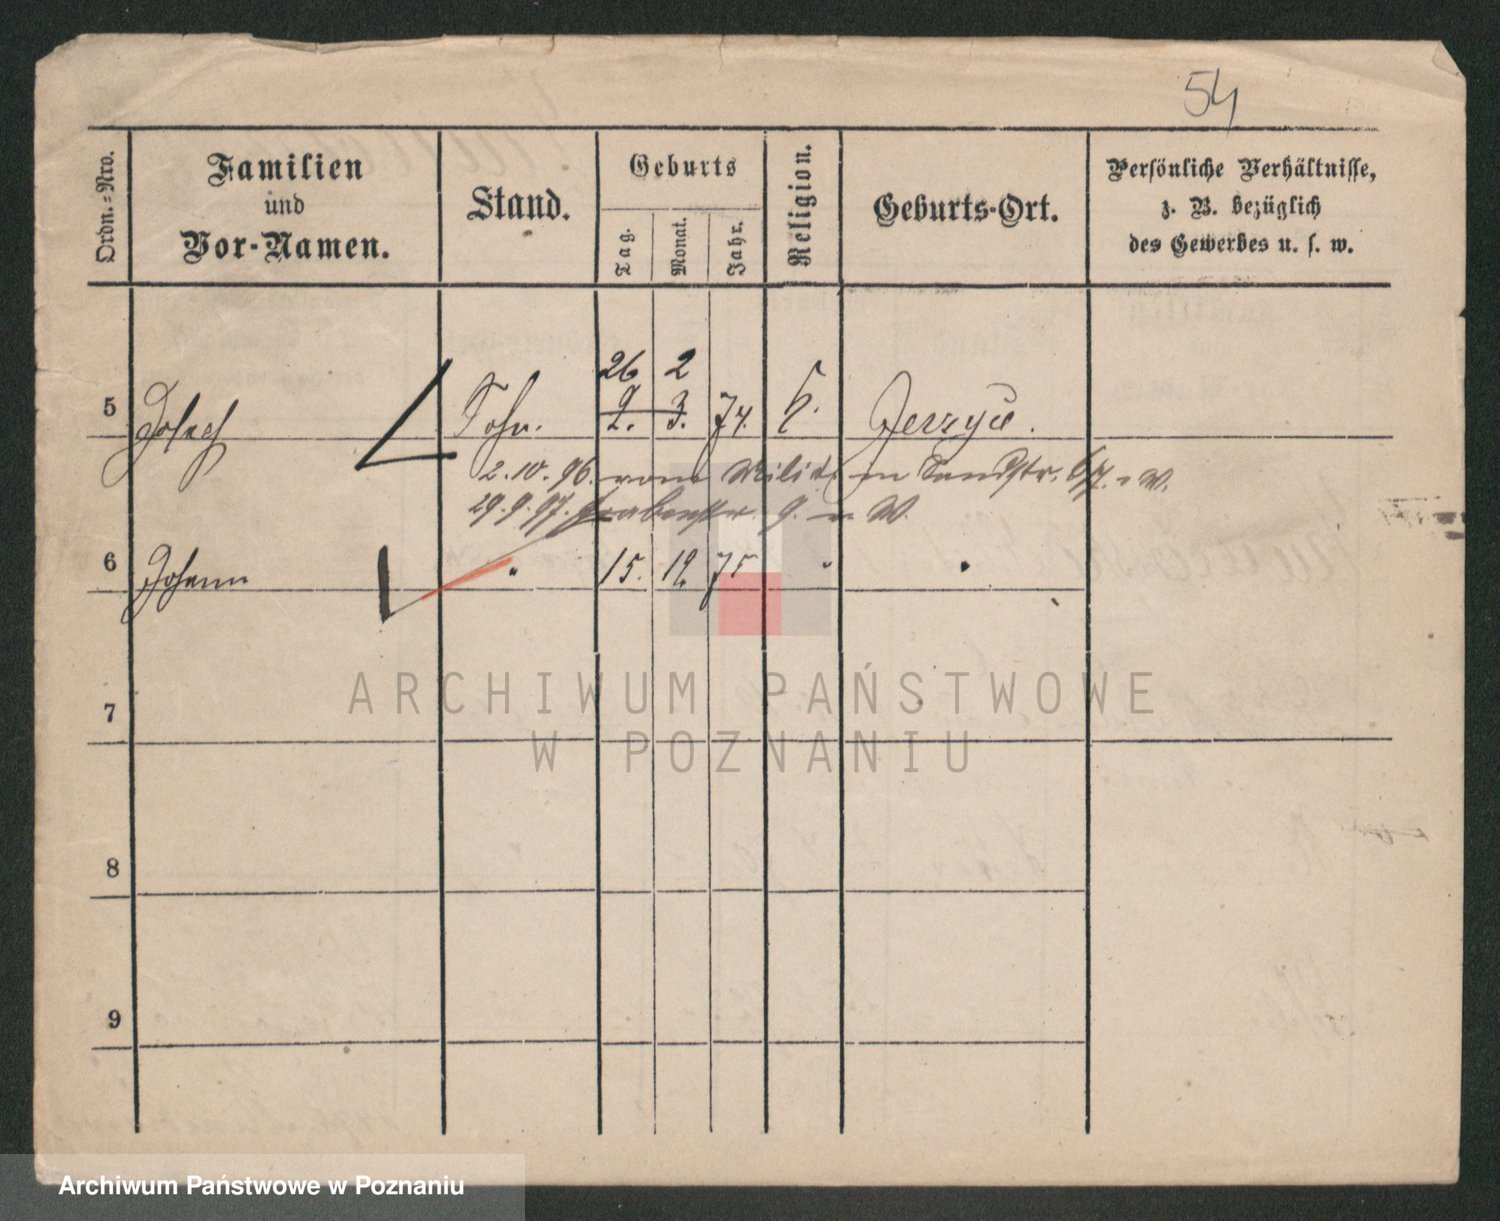 54
Ordn.-Nro.
Familien
und
Vor-Namen.
Stand.
Geburts
Tag.
Monat.
Jahr.
Religion.
Geburts-Ort.
Persönliche Verhältnisse,
z. B. bezüglich
des Gewerbes u. s. w.
26 2
5 Josef Sohn. 2. 3. 74. k. Jerzyce.
2.10.96. vom Milit. n Sandstr. 6/7. W.
29.9.97. Grabenstr. 9. n W.
6 Johann " 15. 12. 75 " "
7
8
9
ARCHIWUM PAŃSTWOWE
W POZNANIU
Archiwum Państwowe w Poznaniu